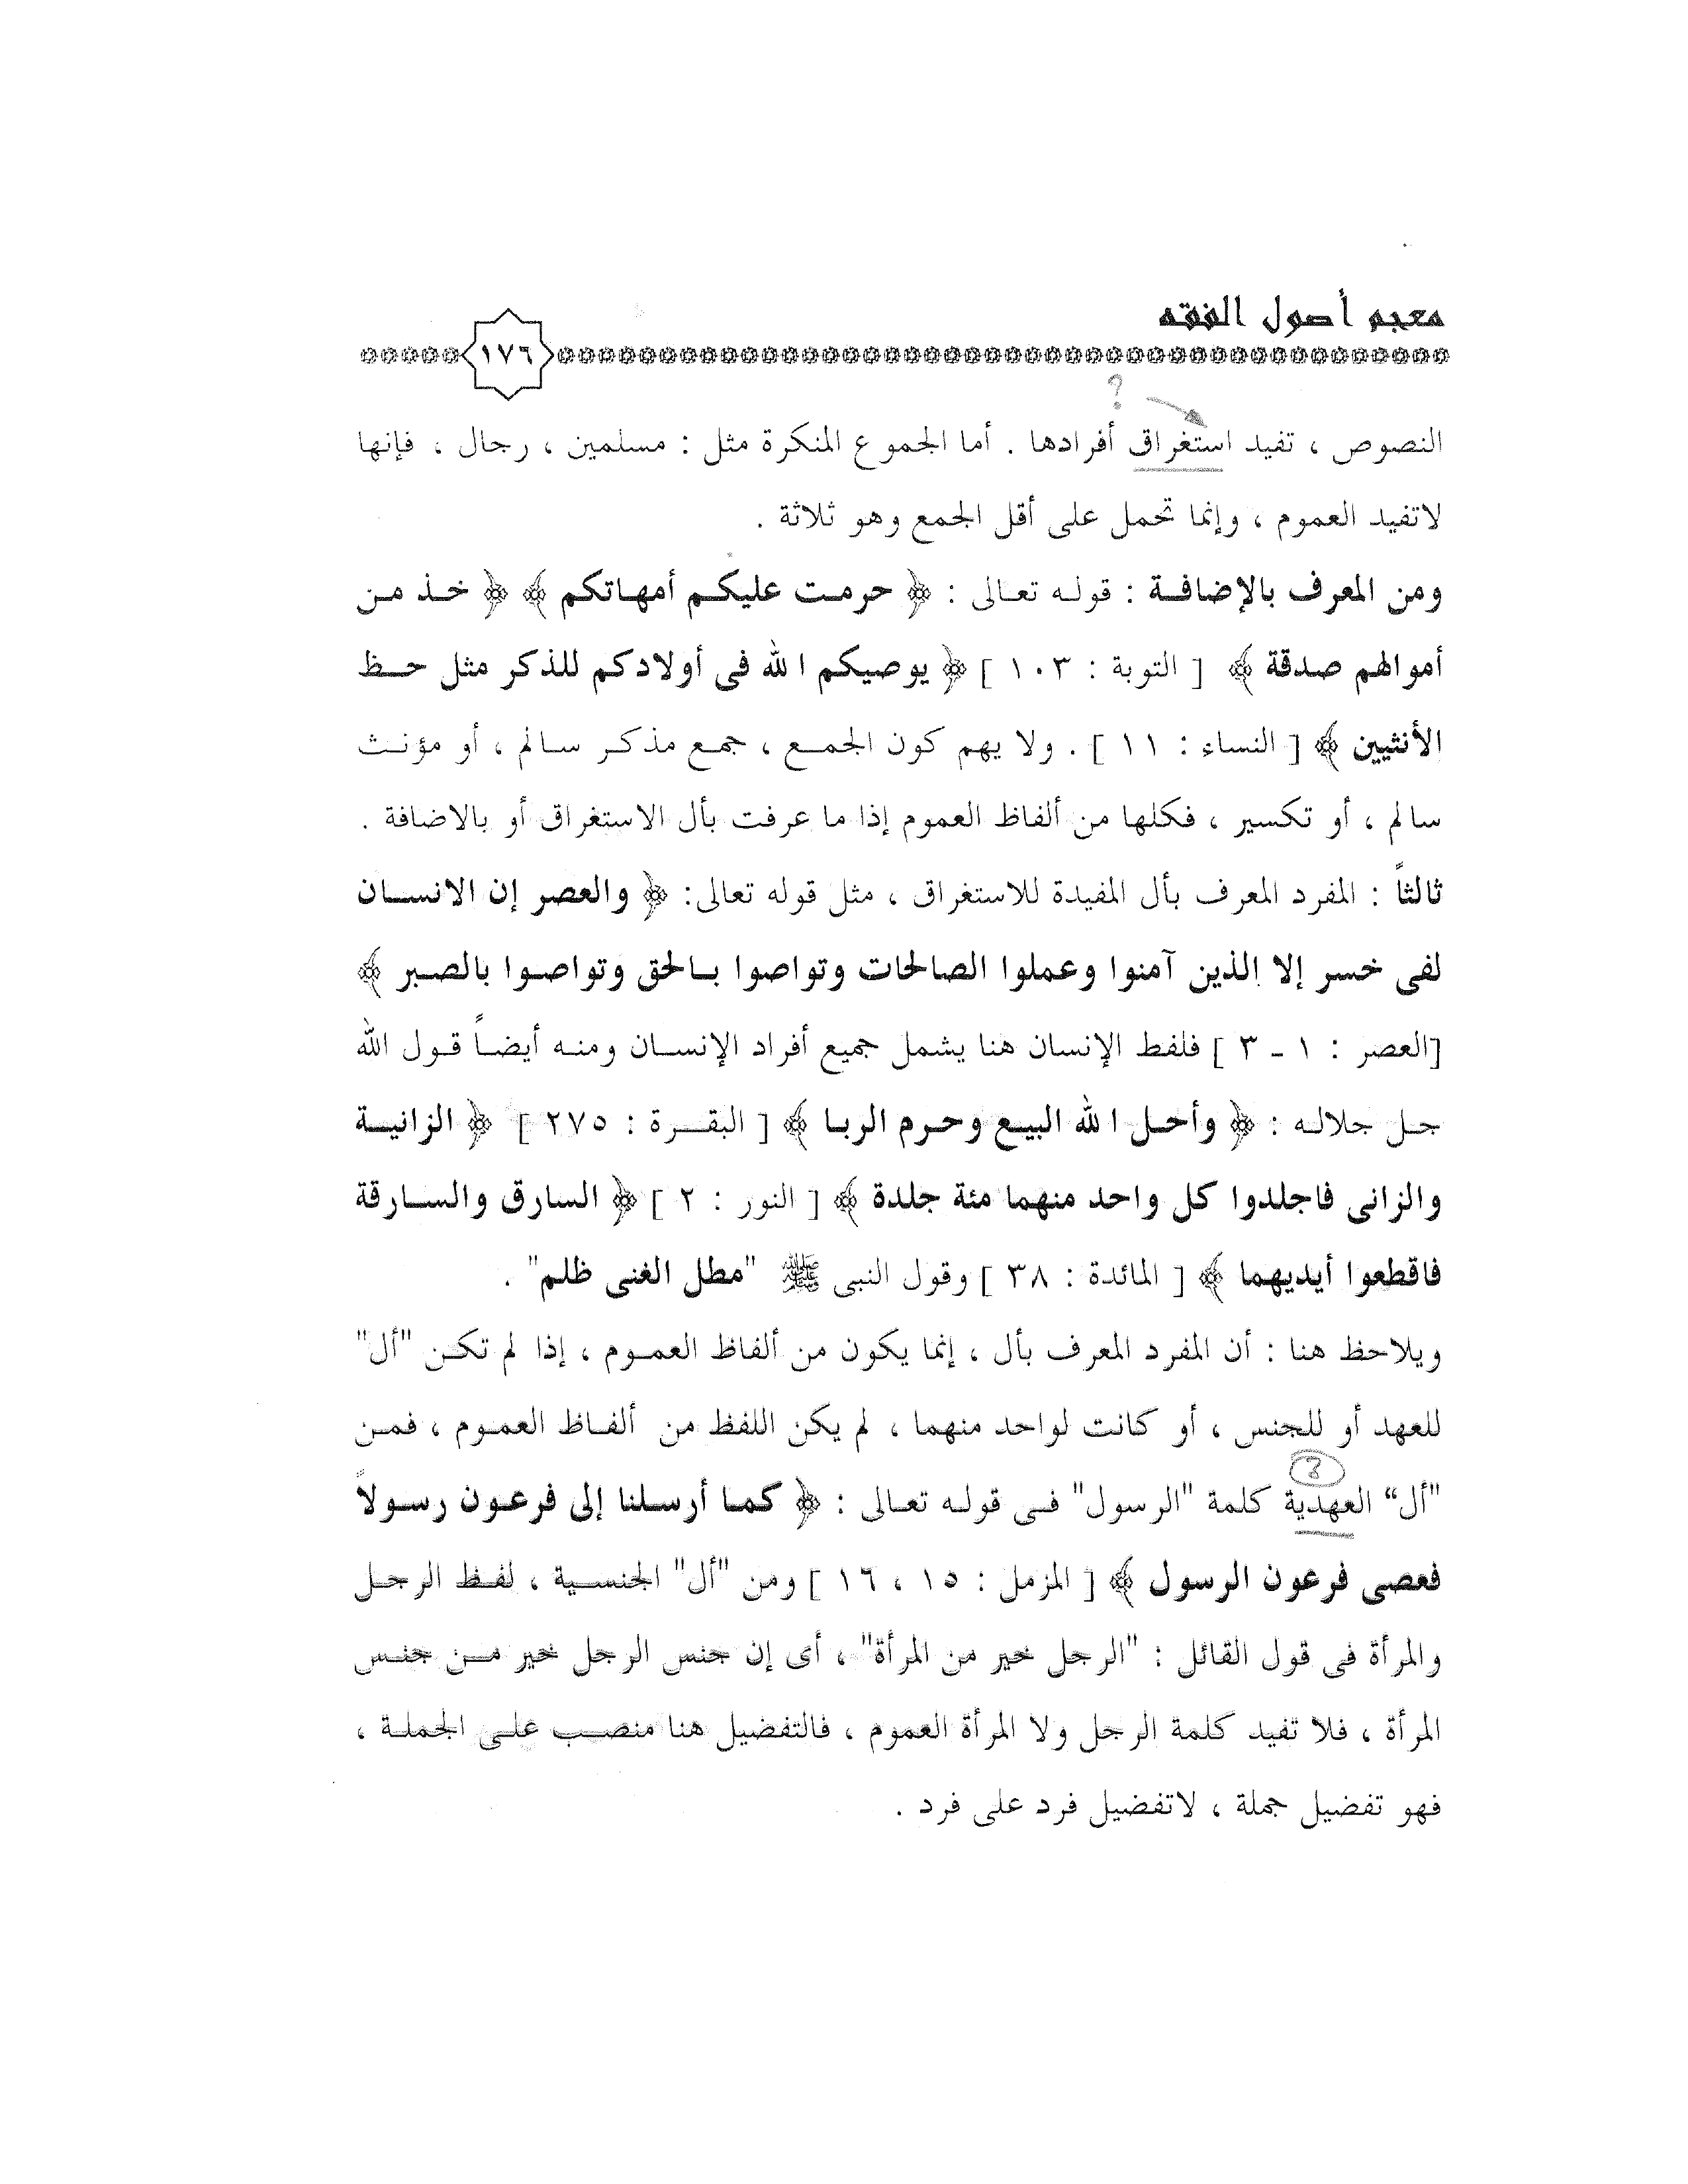 معجم أصول الفقه
١٧٦
?
النصوص ، تفيد استغراق أفرادها . أما الجموع المنكرة مثل : مسلمين ، رجال ، فإنها
لاتفيد العموم ، وإنما تحمل على أقل الجمع وهو ثلاثة .
ومن المعرف بالإضافة : قوله تعالى : ﴿ حرمت عليكم أمهاتكم ﴾ ﴿ خذ من
أموالهم صدقة ﴾ [ التوبة : ١٠٣ ] ﴿ يوصيكم الله فى أولادكم للذكر مثل حظ
الأنثيين ﴾ [ النساء : ١١ ] . ولا يهم كون الجمع ، جمع مذكر سالم ، أو مؤنث
سالم ، أو تكسير ، فكلها من ألفاظ العموم إذا ما عرفت بأل الاستغراق أو بالاضافة .
ثالثاً : المفرد المعرف بأل المفيدة للاستغراق ، مثل قوله تعالى: ﴿ والعصر إن الانسان
لفى خسر إلا الذين آمنوا وعملوا الصالحات وتواصوا بالحق وتواصوا بالصبر ﴾
[العصر : ١ - ٣ ] فلفظ الإنسان هنا يشمل جميع أفراد الإنسان ومنه أيضاً قول الله
جل جلاله : ﴿ وأحل الله البيع وحرم الربا ﴾ [ البقرة : ٢٧٥ ] ﴿ الزانية
والزانى فاجلدوا كل واحد منهما مئة جلدة ﴾ [ النور : ٢ ] ﴿ السارق والسارقة
فاقطعوا أيديهما ﴾ [ المائدة : ٣٨ ] وقول النبى ﷺ "مطل الغنى ظلم" .
ويلاحظ هنا : أن المفرد المعرف بأل ، إنما يكون من ألفاظ العموم ، إذا لم تكن "أل"
للعهد أو للجنس ، أو كانت لواحد منهما ، لم يكن اللفظ من ألفاظ العموم ، فمن
"أل“ العهدية كلمة "الرسول" فى قوله تعالى : ﴿ كما أرسلنا إلى فرعون رسولاً
فعصى فرعون الرسول ﴾ [ المزمل : ١٥ ، ١٦ ] ومن "أل" الجنسية ، لفظ الرجل
والمرأة فى قول القائل : "الرجل خير من المرأة" ، أى إن جنس الرجل خير من جنس
المرأة ، فلا تفيد كلمة الرجل ولا المرأة العموم ، فالتفضيل هنا منصب على الجملة ،
فهو تفضيل جملة ، لاتفضيل فرد على فرد .